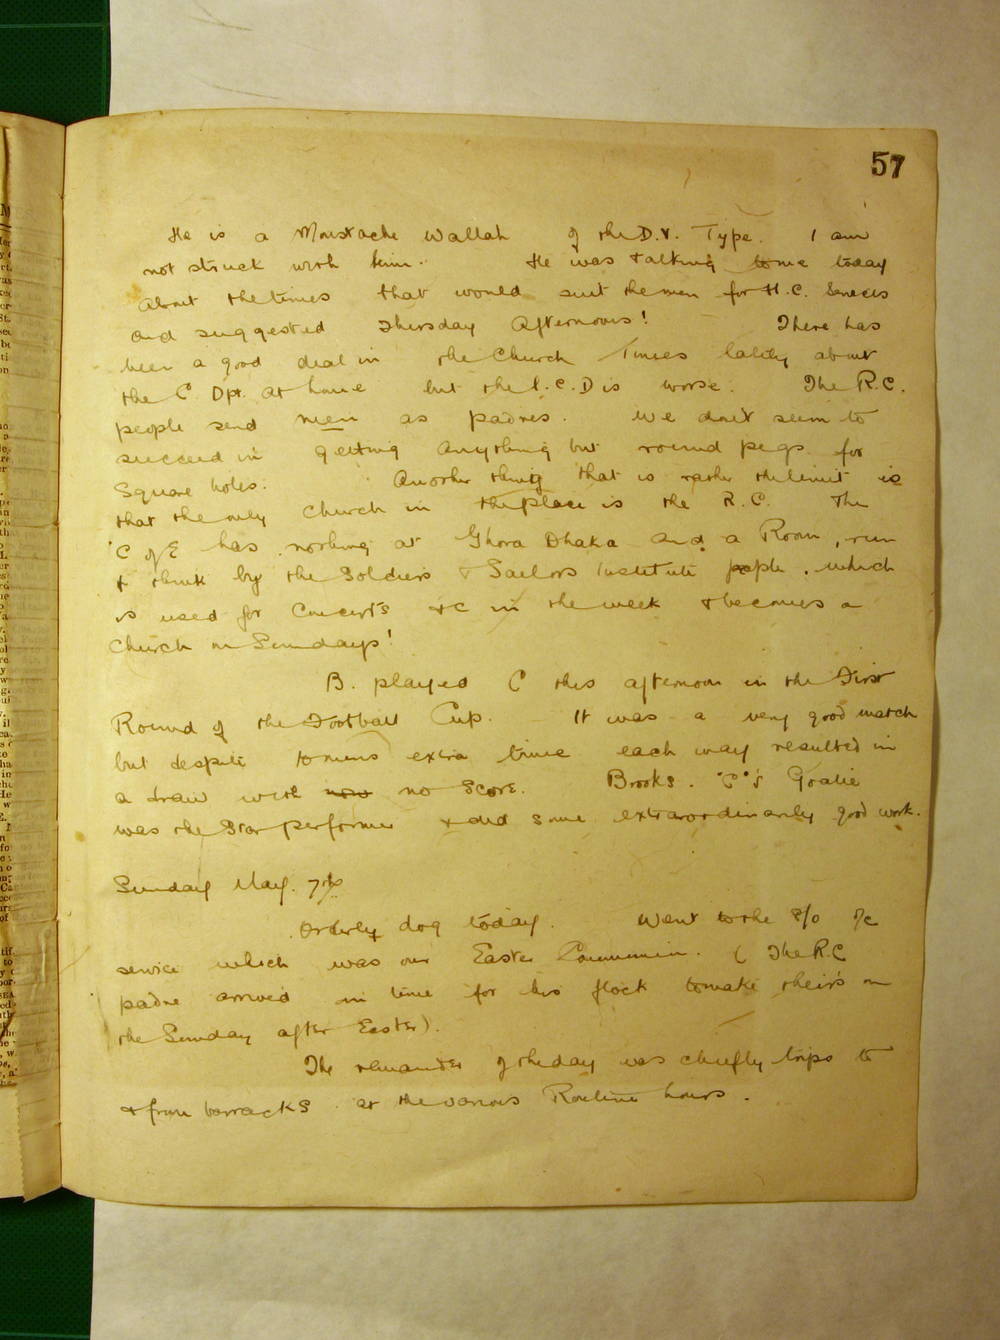 57
He is a Moustache Wallah of the D.V. Type. I am
not struck with him. He was talking to me today
about the times that would suit the men for H.C. Services
and suggested Thursday Afternoons! There has
been a good deal in the Church Times lately about
the C Dpt. at home but the I.C.D is worse. The R.C.
people send men as padres. We don't seem to
succeed in getting anything but round pegs for
square holes. Another thing that is rather the limit is
that the only church in the place is the R.C. The
C of E has nothing at Ghora Dhaka and a Room, run
I think by the Soldiers & Sailors Institute people, which
is used for Concerts &c in the week & becomes a
church on Sundays!
B. played C this afternoon in the First
Round of the Football Cup. It was a very good match
but despite 10 mins extra time each way resulted in
a draw with no score. Brooks. "C"'s Goalie
was the Star performer & did some extraordinarily good work.
Sunday May. 7th
Orderly dog today. Went to the P/o
service which was our Easter Communion. (The R.C
padre arrived in time for his flock to make their's on
the Sunday after Easter).
The remainder of the day was chiefly trips to
& from barracks at the various Routine hours.